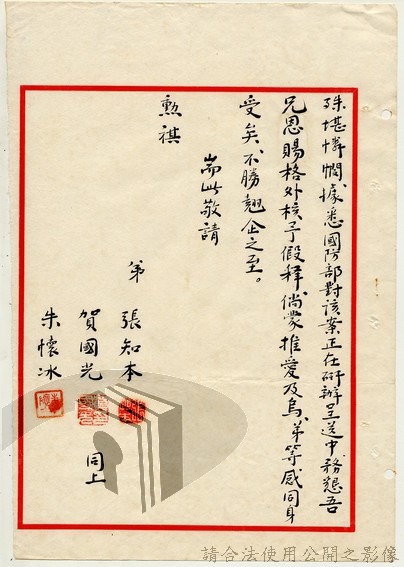 殊堪憐憫據悉國防部對該案正在研辦呈送中務懇吾
兄恩賜格外核予假釋倘蒙推愛及烏弟等感同身
受矣不勝翹企之至。
耑此敬請
勳祺
弟 張知本
賀國光 同上
朱懷冰
請合法使用公開之影像